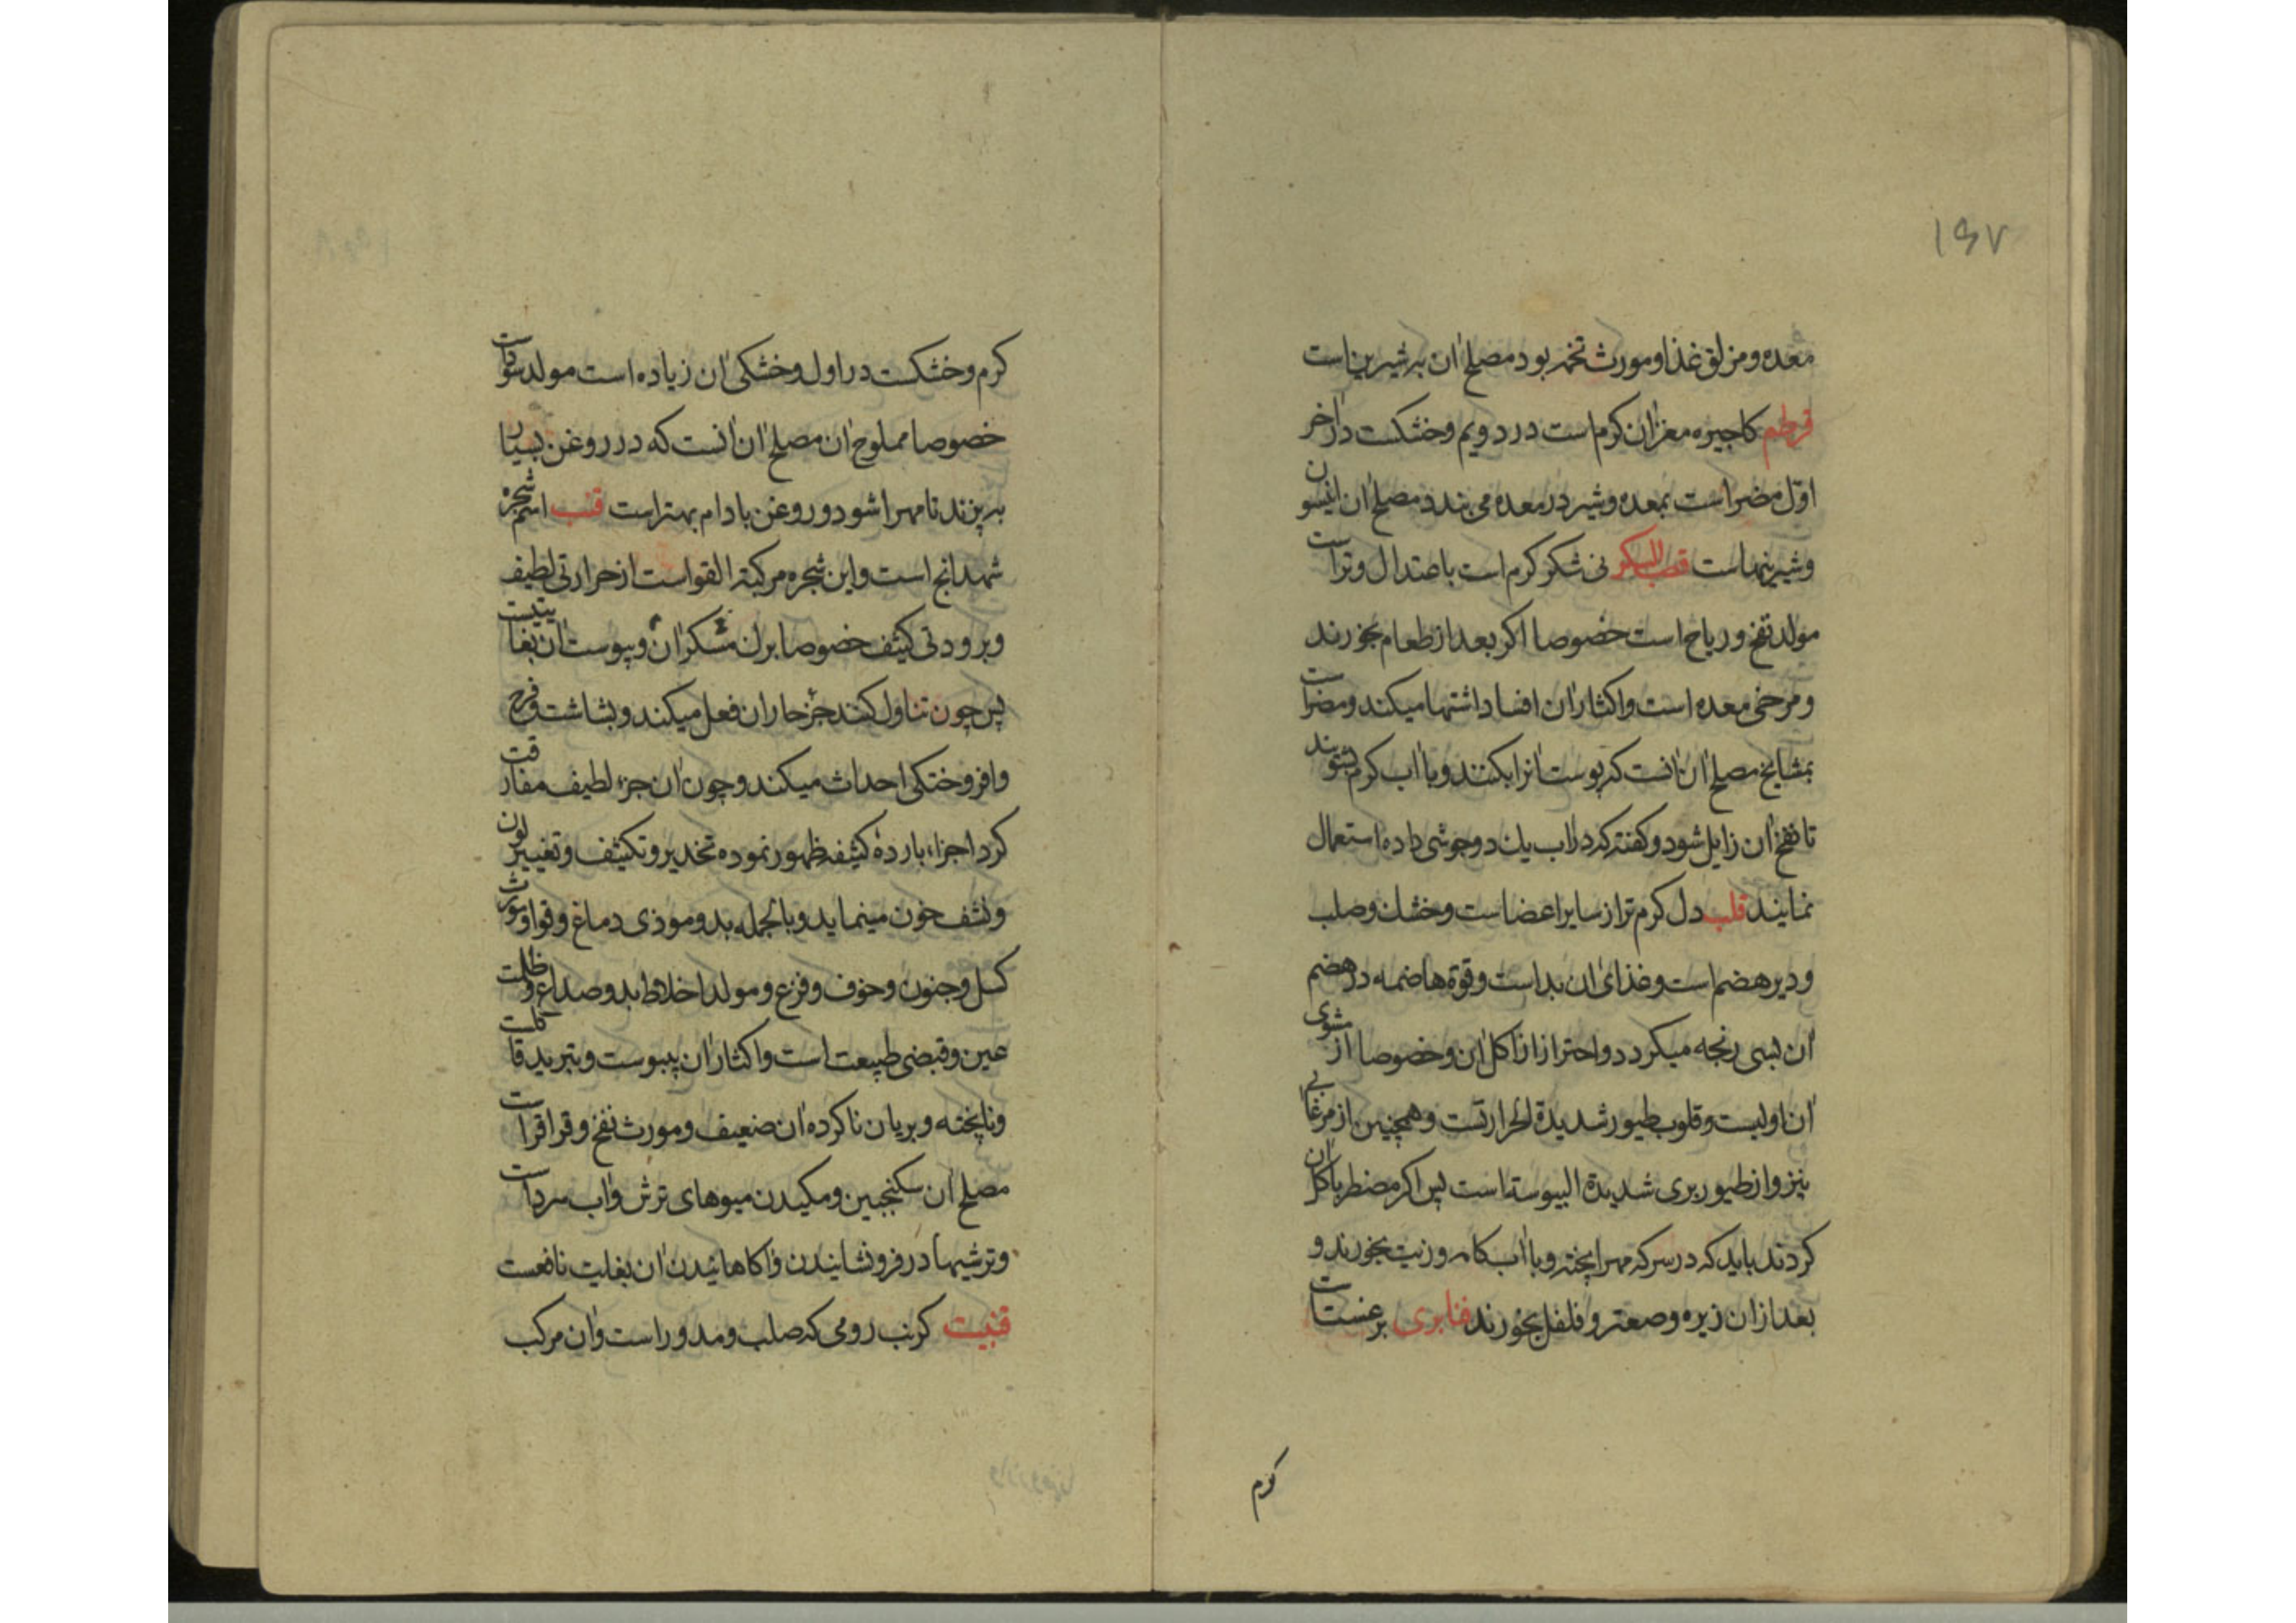 ۱۶۷
معده و مزلق غذا و مورث تخمه بود مصلح ان به شیرین است
قرطم کاجیره مغزان کرم است در دویم و خشکست در اخر
اول مضر است بمعده و شیر در معده می بندد مصلح ان انیسون
و شیرینهاست قصب السکر نی شکر کرم است باعتدال و تر است
مولد نفخ و ریاح است خصوصا اکر بعد از طعام بخورند
و مرخی معده است و اکثار ان افساد اشتها میکند و مضر است
بمشایخ مصلح ان انست که پوست انرا بکنند و با اب کرم بشویند
تا نفخ ان زایل شود و کفته که در اب یک دو جوشی داده استعمال
نمایند قلب دل کرم تر از سایر اعضاست و خشک و صلب
و دیر هضم است و غذای ان بد است و قوة هاضمه در هضم
ان بسی رنجه میکردد و احتراز از اکل ان و خصوصا از مشوی
ان اولیست و قلوب طیور شدیدة الحرارتست و همچنین از مرغابی
نیز و از طیور بری شدیدة الیبوسته است پس اکر مضطر باکل ان
کردند باید که در سرکه مهرا پخته و با اب کامه و زیت بخورند و
بعد از ان زیره و صعتر و فلفل بخورند قنابری برغست است
کرم
کرم و خشکست در اول و خشکی ان زیاده است مولد سودا است
خصوصا مملوح ان مصلح ان انست که در روغن بسیار
به پزند تا مهرا شود و روغن بادام بهتر است قنب اسم شجره
شهدانج است و این شجره مرکبة القواست از حرارتی لطیف
و برودتی کثیف خصوصا برک مسکر ان و یبوست ان بغایتست
پس چون تناول کنند جزء حار ان فعل میکند و بشاشت و فرح
و افروختکی احداث میکند و چون ان جزء لطیف مفارقت
کرد اجزاء بارده کثیفه ظهور نموده تخدیر و تکثیف و تغییر لون
و نشف خون مینماید و بالجمله بد و موذی دماغ و قوا و مورث
کسل و جنون و خوف و فزع و مولد اخلاط بد و صداع و ظلمت
عین و قبضی طبیعت است و اکثار ان بیبوست و تبرید قاتلست
و ناپخته و بریان ناکرده ان ضعیف و مورث نفخ و قراقر است
مصلح ان سکنجبین و مکیدن میوهای ترش و اب سرد است
و ترشیها در فرو نشانیدن و اکاهانیدن ان بغایت نافعست
قنبیت کرنب رومی که صلب و مدور است و ان مرکب